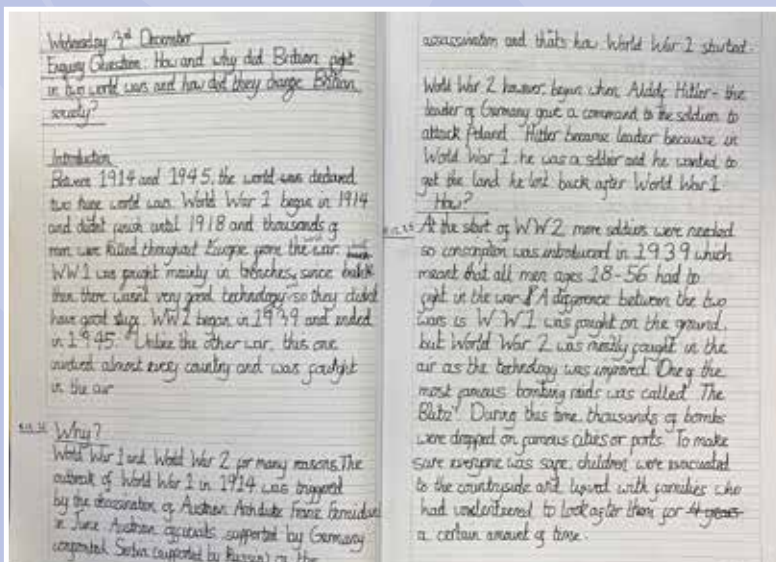 Wednesday 3rd December
Enquiry Question: How and why did Britain fight
in two world wars and how did they change Britain
society?
Introduction
Between 1914 and 1945, the world was declared
two huge world wars. World War 1 began in 1914
and didnt finish until 1918 and thousands of
men were killed throughout Europe from the war.
WW1 was fought mainly in trenches, since back
then there wasnt very good technology so they didnt
have good stuff. WW2 began in 1939 and ended
in 1945. Unlike the other war, this one
involved almost every country and was fought
in the air
Why?
World War 1 and World War 2 for many reasons. The
outbreak of World War 1 in 1914 was triggered
by the assassination of Austrian Archduke Franz Ferdinand
in June. Austrian officials supported by Germany
confronted Serbia (supported by Russia) of the
assassination and thats how World War 1 started.
World War 2 however, began when Aldolf Hitler - the
leader of Germany gave a command to the soldiers to
attack Poland. Hitler became leader because in
World War 1, he was a soldier and he wanted to
get the land he lost back after World War 1
How?
At the start of WW2 more soldiers were needed
so conscription was introduced in 1939 which
meant that all men ages 18-56 had to
fight in the war. A difference between the two
wars is WW1 was fought on the ground,
but World War 2 was mostly fought in the
air as the technology was improved. One of the
most famous bombing raids was called 'The
Blitz'. During this time, thousands of bombs
were dropped on famous cities or ports. To make
sure everyone was safe, children were evacuated
to the countryside and lived with families who
had volenteered to look after them for 4 years
a certain amount of time.